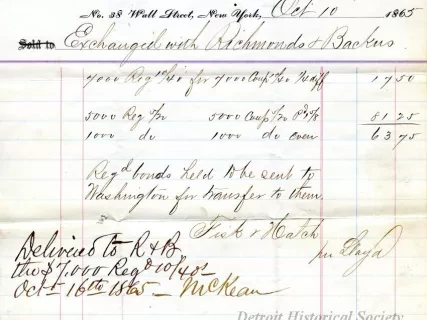 No. 38 Wall Street, New York, Oct 10 1865
Sold to Exchanged with Richmonds & Backus
7000 Reg 10/40 for 7000 Coup 10/40 ¼ diff 17 50
5000 Reg 5/20 5000 Coup 5/20 81 25
1000 do 1000 do even 63 75
Regd bonds held to be sent to
Washington for transfer to them.
Fisk & Hatch
per Lloyd
Delivered to R & B
the $7,000 Regd 10/40s
Oct 16th 1865 - McKean
Detroit Historical Society